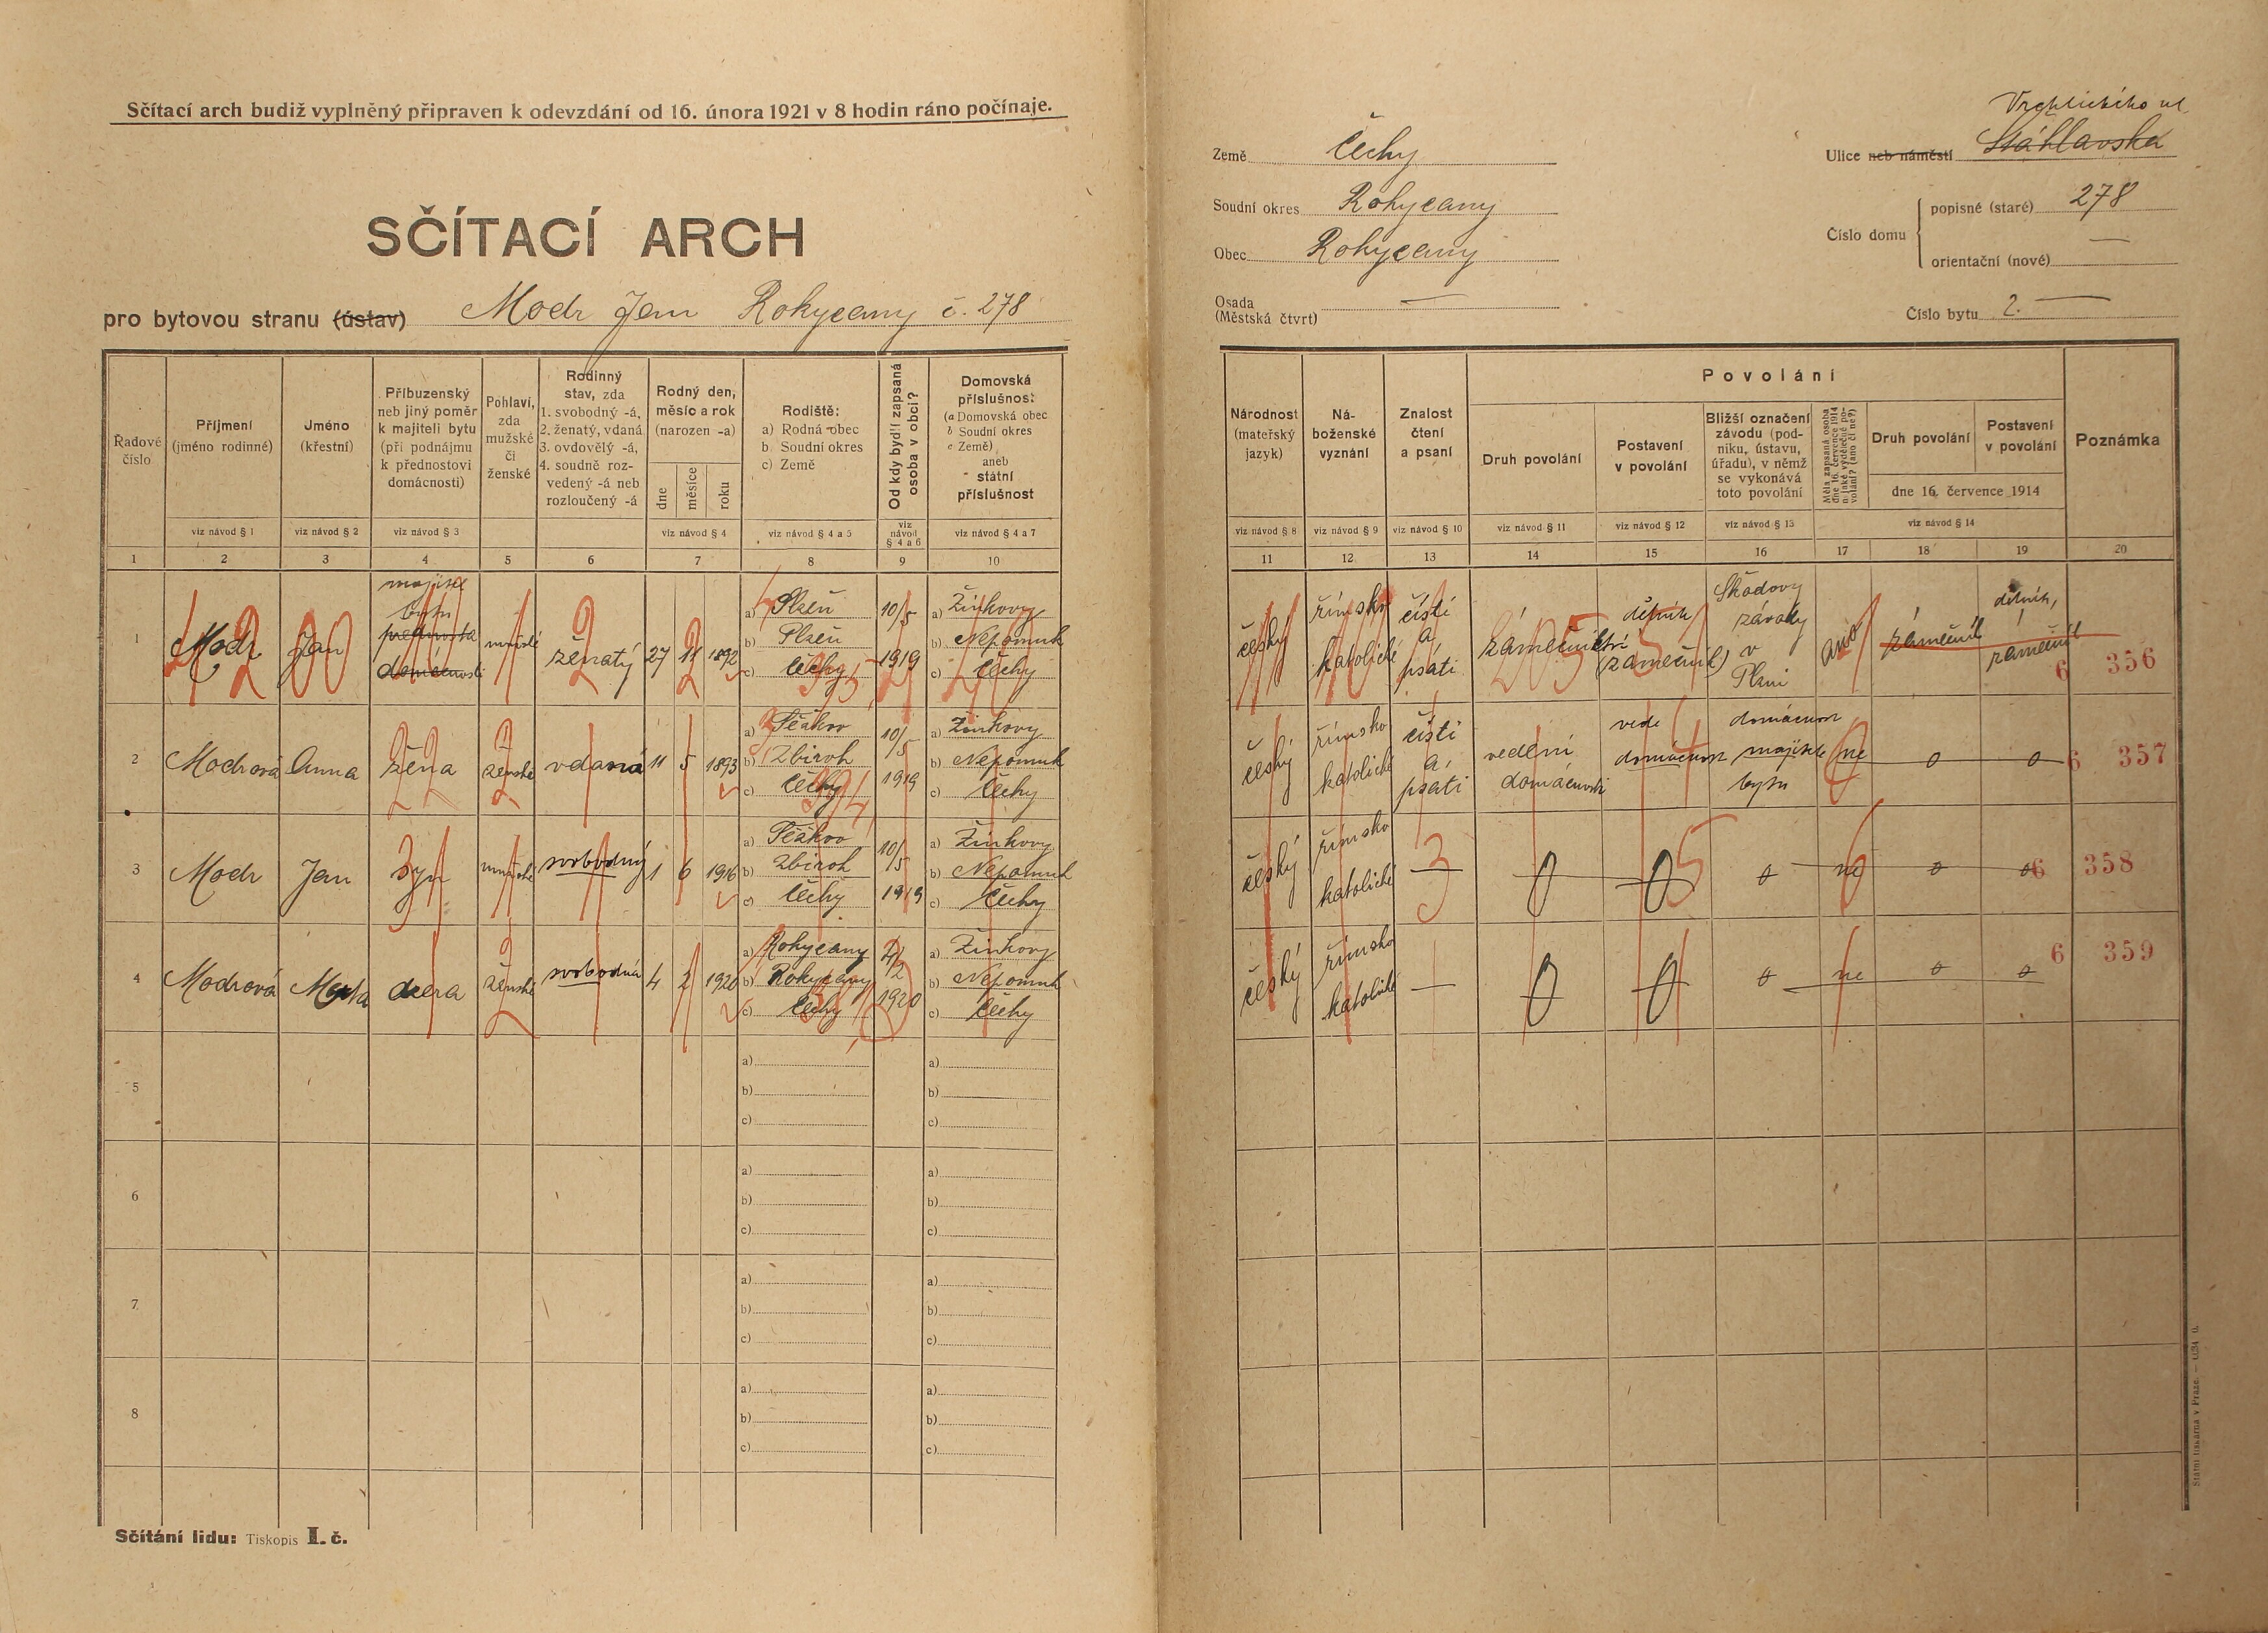 Sčítací arch budiž vyplněný připraven k odevzdání od 16. února 1921 v 8 hodin ráno počínaje.
SČÍTACÍ ARCH
pro bytovou stranu (ústav) Modr Jan Rokycany č. 278
Řadové číslo
Příjmení
(jméno rodinné)
viz návod § 1
Jméno
(křestní)
viz návod § 2
Příbuzenský
neb jiný poměr
k majiteli bytu
(při podnájmu
k přednostovi
domácnosti)
viz návod § 3
Pohlaví,
zda
mužské
či
ženské
Rodinný
stav, zda
1. svobodný -á,
2. ženatý, vdaná
3. ovdovělý -á,
4. soudně roz-
vedený -á neb
rozloučený -á
Rodný den,
měsíc a rok
(narozen -a)
dne
měsíce
roku
viz návod § 4
Rodiště:
a) Rodná obec
b) Soudní okres
c) Země
viz návod § 4 a 5
Od kdy bydlí zapsaná
osoba v obci?
viz
návod
§ 4 a 6
Domovská
příslušnost
(a Domovská obec
b Soudní okres
c Země)
aneb
státní
příslušnost
viz návod § 4 a 7
1 2 3 4 5 6 7 8 9 10
1
Modr
Jan
majitel
bytu
přednosta
domácnosti
mužské
ženatý
27
11
1892
a) Plzeň
b) Plzeň
c) Čechy
10/5
1919
a) Žinkovy
b) Nepomuk
c) Čechy
2
Modrová
Anna
žena
ženské
vdaná
11
5
1893
a)
b) Zbiroh
c) Čechy
10/5
1919
a) Žinkovy
b) Nepomuk
c) Čechy
3
Modr
Jan
Syn
mužské
svobodný
1
6
1916
a)
b) Zbiroh
c) Čechy
10/5
1919
a) Žinkovy
b) Nepomuk
c) Čechy
4
Modrová
dcera
ženské
svobodná
4
2
1920
a) Rokycany
b) Rokycany
c) Čechy
4/2
1920
a) Žinkovy
b) Nepomuk
c) Čechy
5
a) a)
b) b)
c) c)
6
a) a)
b) b)
c) c)
7
a) a)
b) b)
c) c)
8
a) a)
b) b)
c) c)
Sčítání lidu: Tiskopis I. č.
Země Čechy
Soudní okres Rokycany
Obec Rokycany
Osada
(Městská čtvrt) —
Vrchlického ul.
Ulice neb náměstí Štáhlavská
Číslo domu
popisné (staré) 278
orientační (nové) —
Číslo bytu 2. —
Národnost
(mateřský
jazyk)
viz návod § 8
Ná-
boženské
vyznání
viz návod § 9
Znalost
čtení
a psaní
viz návod § 10
Povolání
Druh povolání
viz návod § 11
Postavení
v povolání
viz návod § 12
Bližší označení
závodu (pod-
niku, ústavu,
úřadu), v němž
se vykonává
toto povolání
viz návod § 13
Měla zapsaná osoba
dne 16. července 1914
nějaké výdělečné po-
volání? (ano či ne?)
Druh povolání
Postavení
v povolání
dne 16. července 1914
viz návod § 14
Poznámka
11 12 13 14 15 16 17 18 19 20
český
římsko
katolické
čísti
a
psáti
zámečnictví
dělník
(zámečník)
Škodovy
závody
v
Plzni
ano
zámečník
dělník,
zámečník
6 356
český
římsko
katolické
čísti
a
psáti
vedení
domácnosti
vede
domácnost
domácnost
majitele
bytu
ne
0
0
6 357
český
římsko
katolické
—
0
0
0
ne
0
0
6 358
český
římsko
katolické
—
0
0
0
ne
0
0
6 359
Státní tiskárna v Praze.